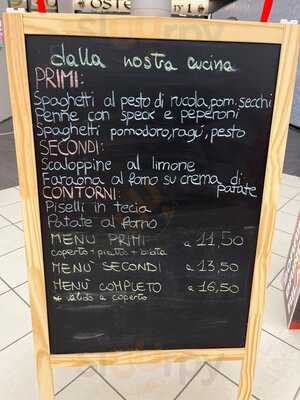 dalla nostra cucina
PRIMI:
Spaghetti al pesto di rucola, pom. secchi
Penne con speck e peperoni
Spaghetti pomodoro, ragú, pesto
SECONDI:
Scaloppine al limone
Faraona al forno su crema di
patate
CONTORNI:
Piselli in tecia
Patate al forno
MENÙ PRIMI a 11,50
coperto + piatto + bibita
MENÙ SECONDI a 13,50
MENÙ COMPLETO a 16,50
* valido a coperto